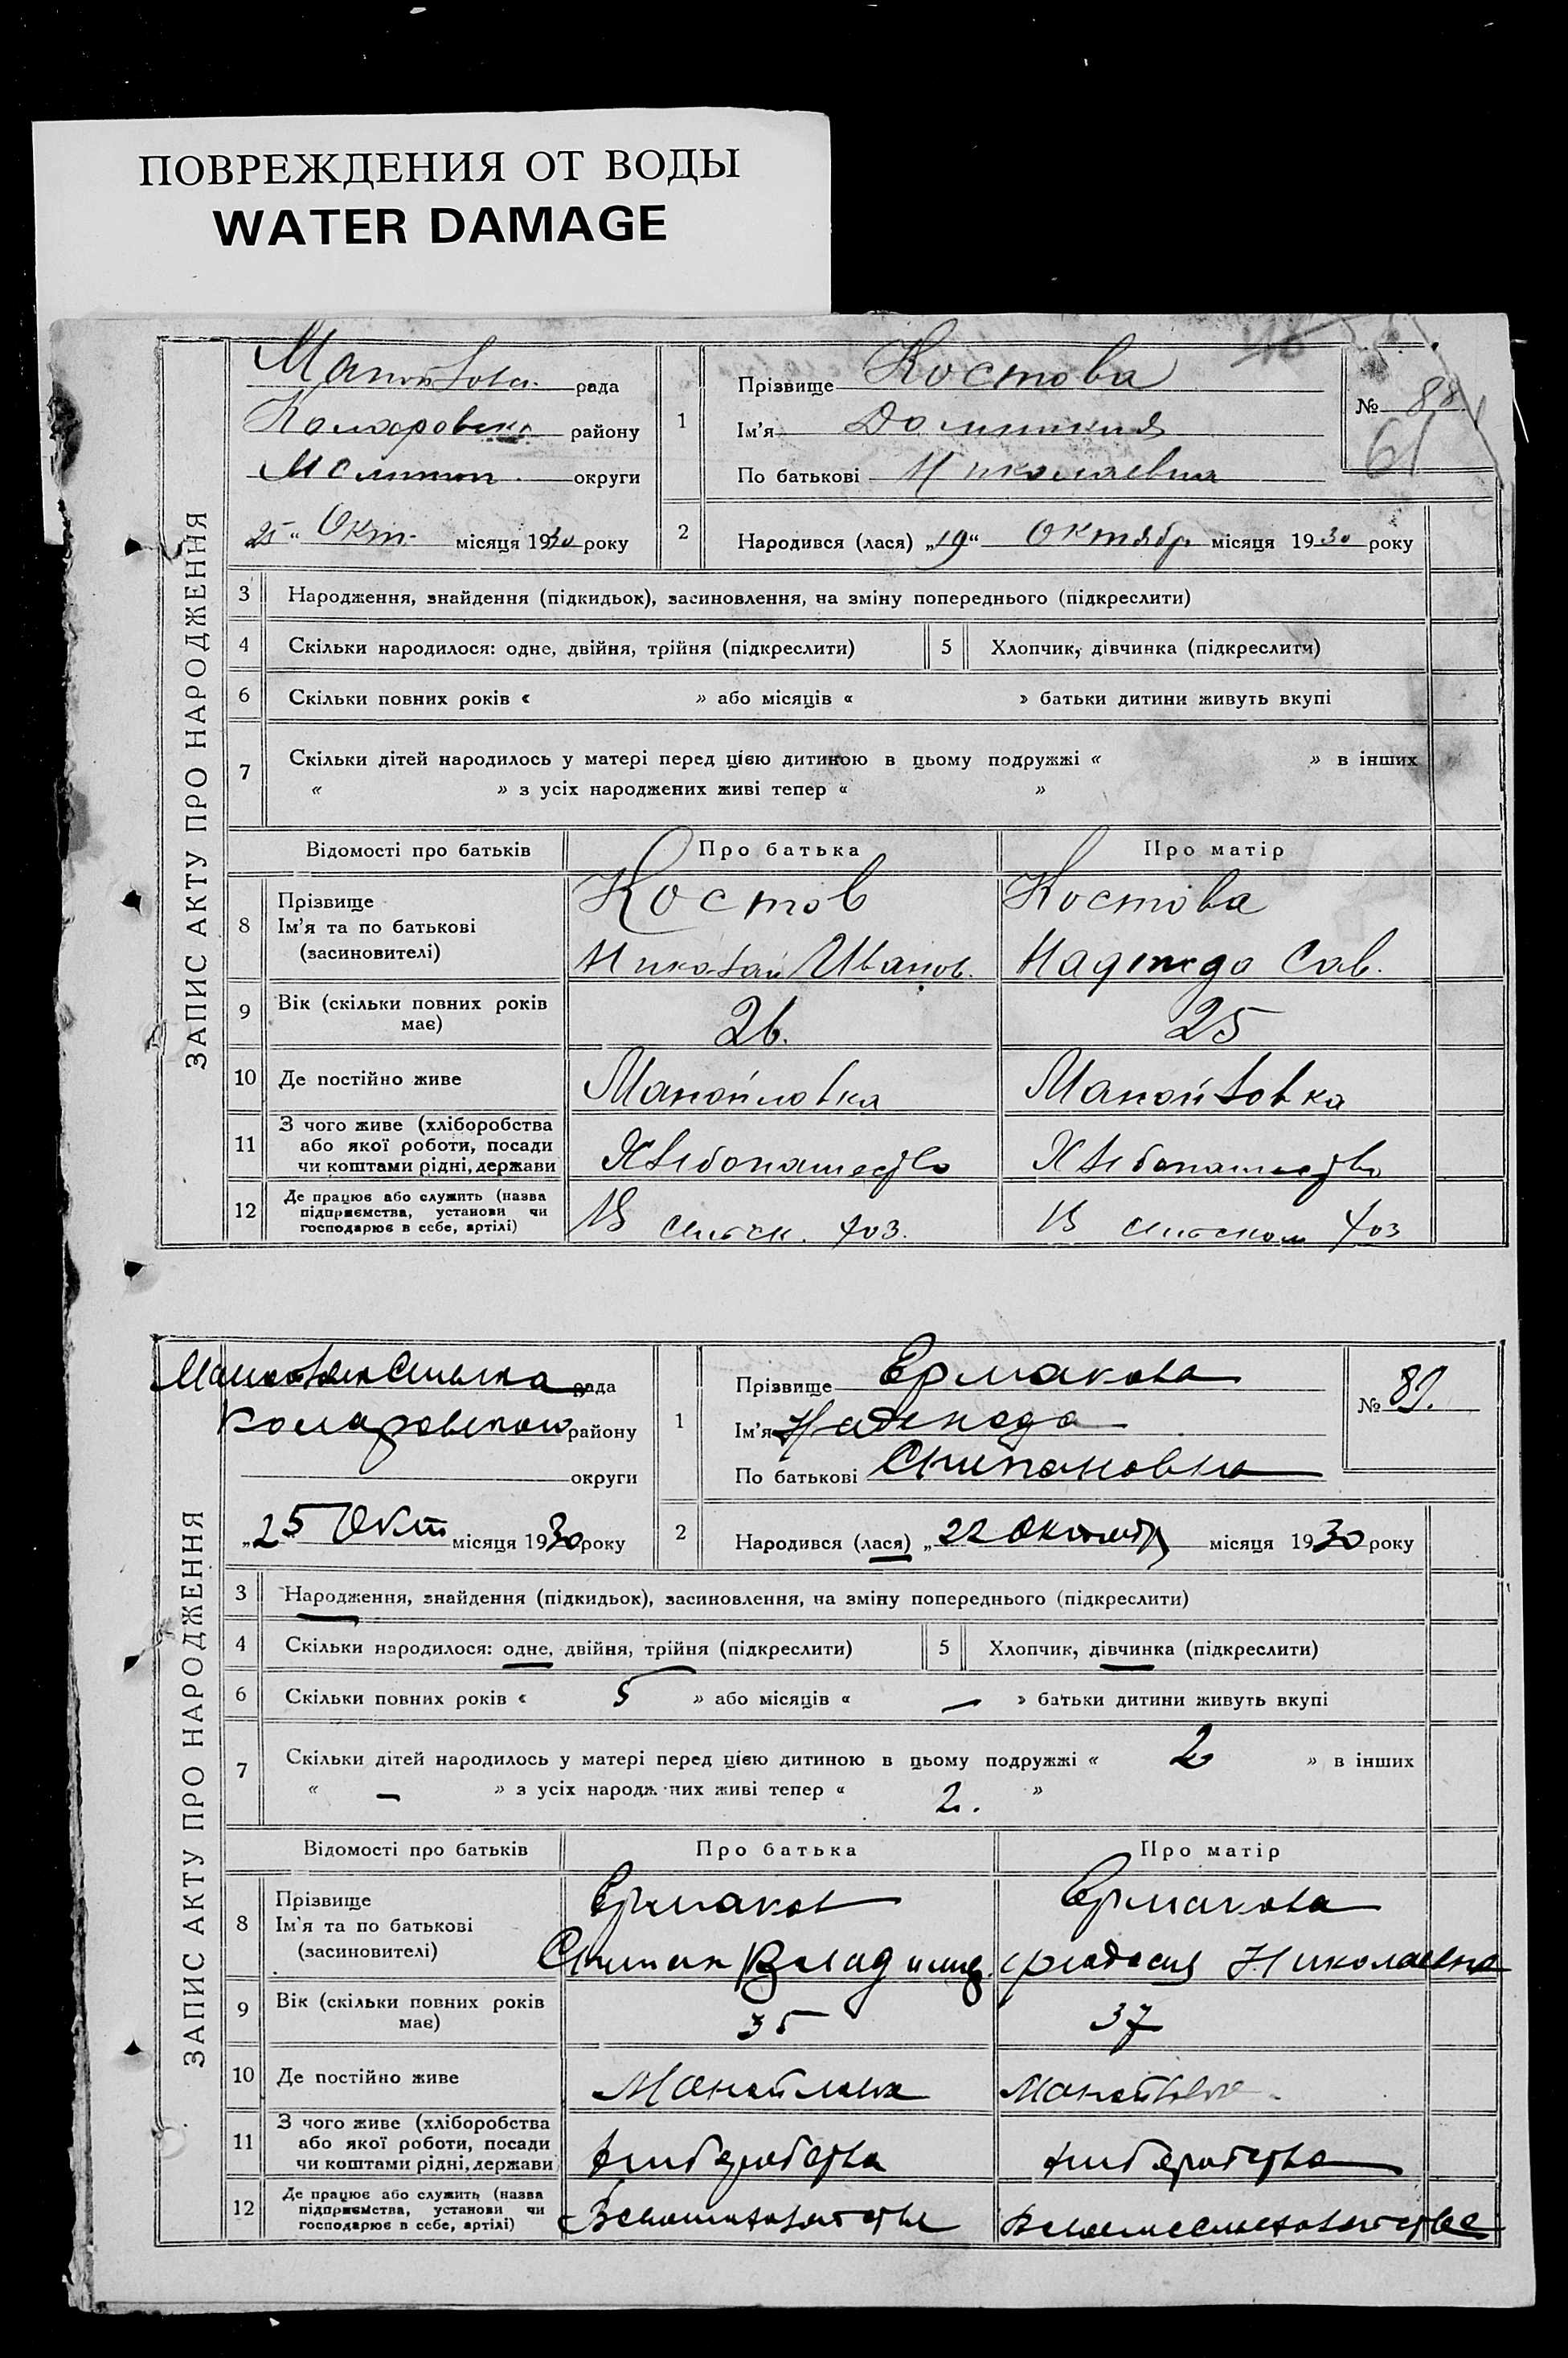 ПОВРЕЖДЕНИЯ ОТ ВОДЫ
WATER DAMAGE
ЗАПИС АКТУ ПРО НАРОДЖЕННЯ
рада
району
округи
25 " Окт. місяця 1930 року
1
Прізвище Костова
Ім'я Доминикия
По батькові Николаевна
№ 88
61
2
Народився (лася) „19" Октябр. місяця 1930 року
3 Народження, знайдення (підкидьок), засиновлення, на зміну попереднього (підкреслити)
4 Скільки народилося: одне, двійня, трійня (підкреслити)
5 Хлопчик, дівчинка (підкреслити)
6 Скільки повних років « » або місяців « » батьки дитини живуть вкупі
7 Скільки дітей народилось у матері перед цією дитиною в цьому подружжі « » в інших
« » з усіх народжених живі тепер « »
Відомості про батьків Про батька Про матір
8 Прізвище
Ім'я та по батькові
(засиновителі)
Костов Костова
Николай Иванов. Надежда Сав.
9 Вік (скільки повних років
має)
26. 25
10 Де постійно живе Манойловка Манойловка
11 З чого живе (хліборобства
або якої роботи, посади
чи коштами рідні, держави
Хлебопашество Хлебопашество
12 Де працює або служить (назва
підприємства, установи чи
господарює в себе, артілі)
В сельск. хоз. В сельском хоз
ЗАПИС АКТУ ПРО НАРОДЖЕННЯ
рада
району
округи
„25 Окт місяця 1930 року
1
Прізвище Ермакова
Ім'я Надежда
По батькові Степановна
№ 89.
2
Народився (лася) „22 місяця 1930 року
3 Народження, знайдення (підкидьок), засиновлення, на зміну попереднього (підкреслити)
4 Скільки народилося: одне, двійня, трійня (підкреслити)
5 Хлопчик, дівчинка (підкреслити)
6 Скільки повних років « 5 » або місяців « — » батьки дитини живуть вкупі
7 Скільки дітей народилось у матері перед цією дитиною в цьому подружжі « 2 » в інших
« — » з усіх народжених живі тепер « 2. »
Відомості про батьків Про батька Про матір
8 Прізвище
Ім'я та по батькові
(засиновителі)
Ермаков Ермакова
Степан Владимир. Феодосия Николаевна
9 Вік (скільки повних років
має)
35 37
10 Де постійно живе Манойловка Манойловка
11 З чого живе (хліборобства
або якої роботи, посади
чи коштами рідні, держави
12 Де працює або служить (назва
підприємства, установи чи
господарює в себе, артілі)